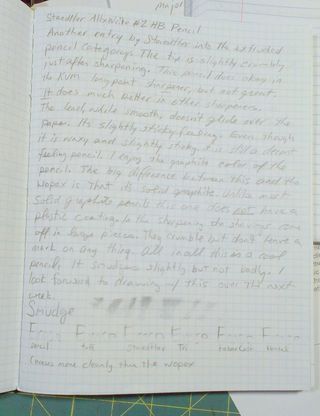 Staedtler AllxWrite #2 HB Pencil
Another entry by Staedtler into the extruded
pencil category. The tip is slightly crumbly
just after sharpening. This pencil does okay in
the KUM longpoint sharpener, but not great.
It does much better in other sharpeners.
The lead, while smooth, doesn't glide over the
paper. Its slightly sticky feeling. Even though
it is waxy and slightly sticky, it is still a decent
feeling pencil. I enjoy the graphite color of the
pencil. The big difference between this and the
Wopex is that its solid graphite. Unlike most
solid graphite pencils this one does not have a
plastic coating. In the sharpening the shavings come
off in large pieces. They crumble but don't leave a
mark on any thing. All in all this is a cool
pencil. It smudges slightly but not badly. I
look forward to drawing w/ this over the next
week.
Smudge
E---- E---- E---- E---- E---- E----
staedtler Tri
Erases more cleanly than the Wopex